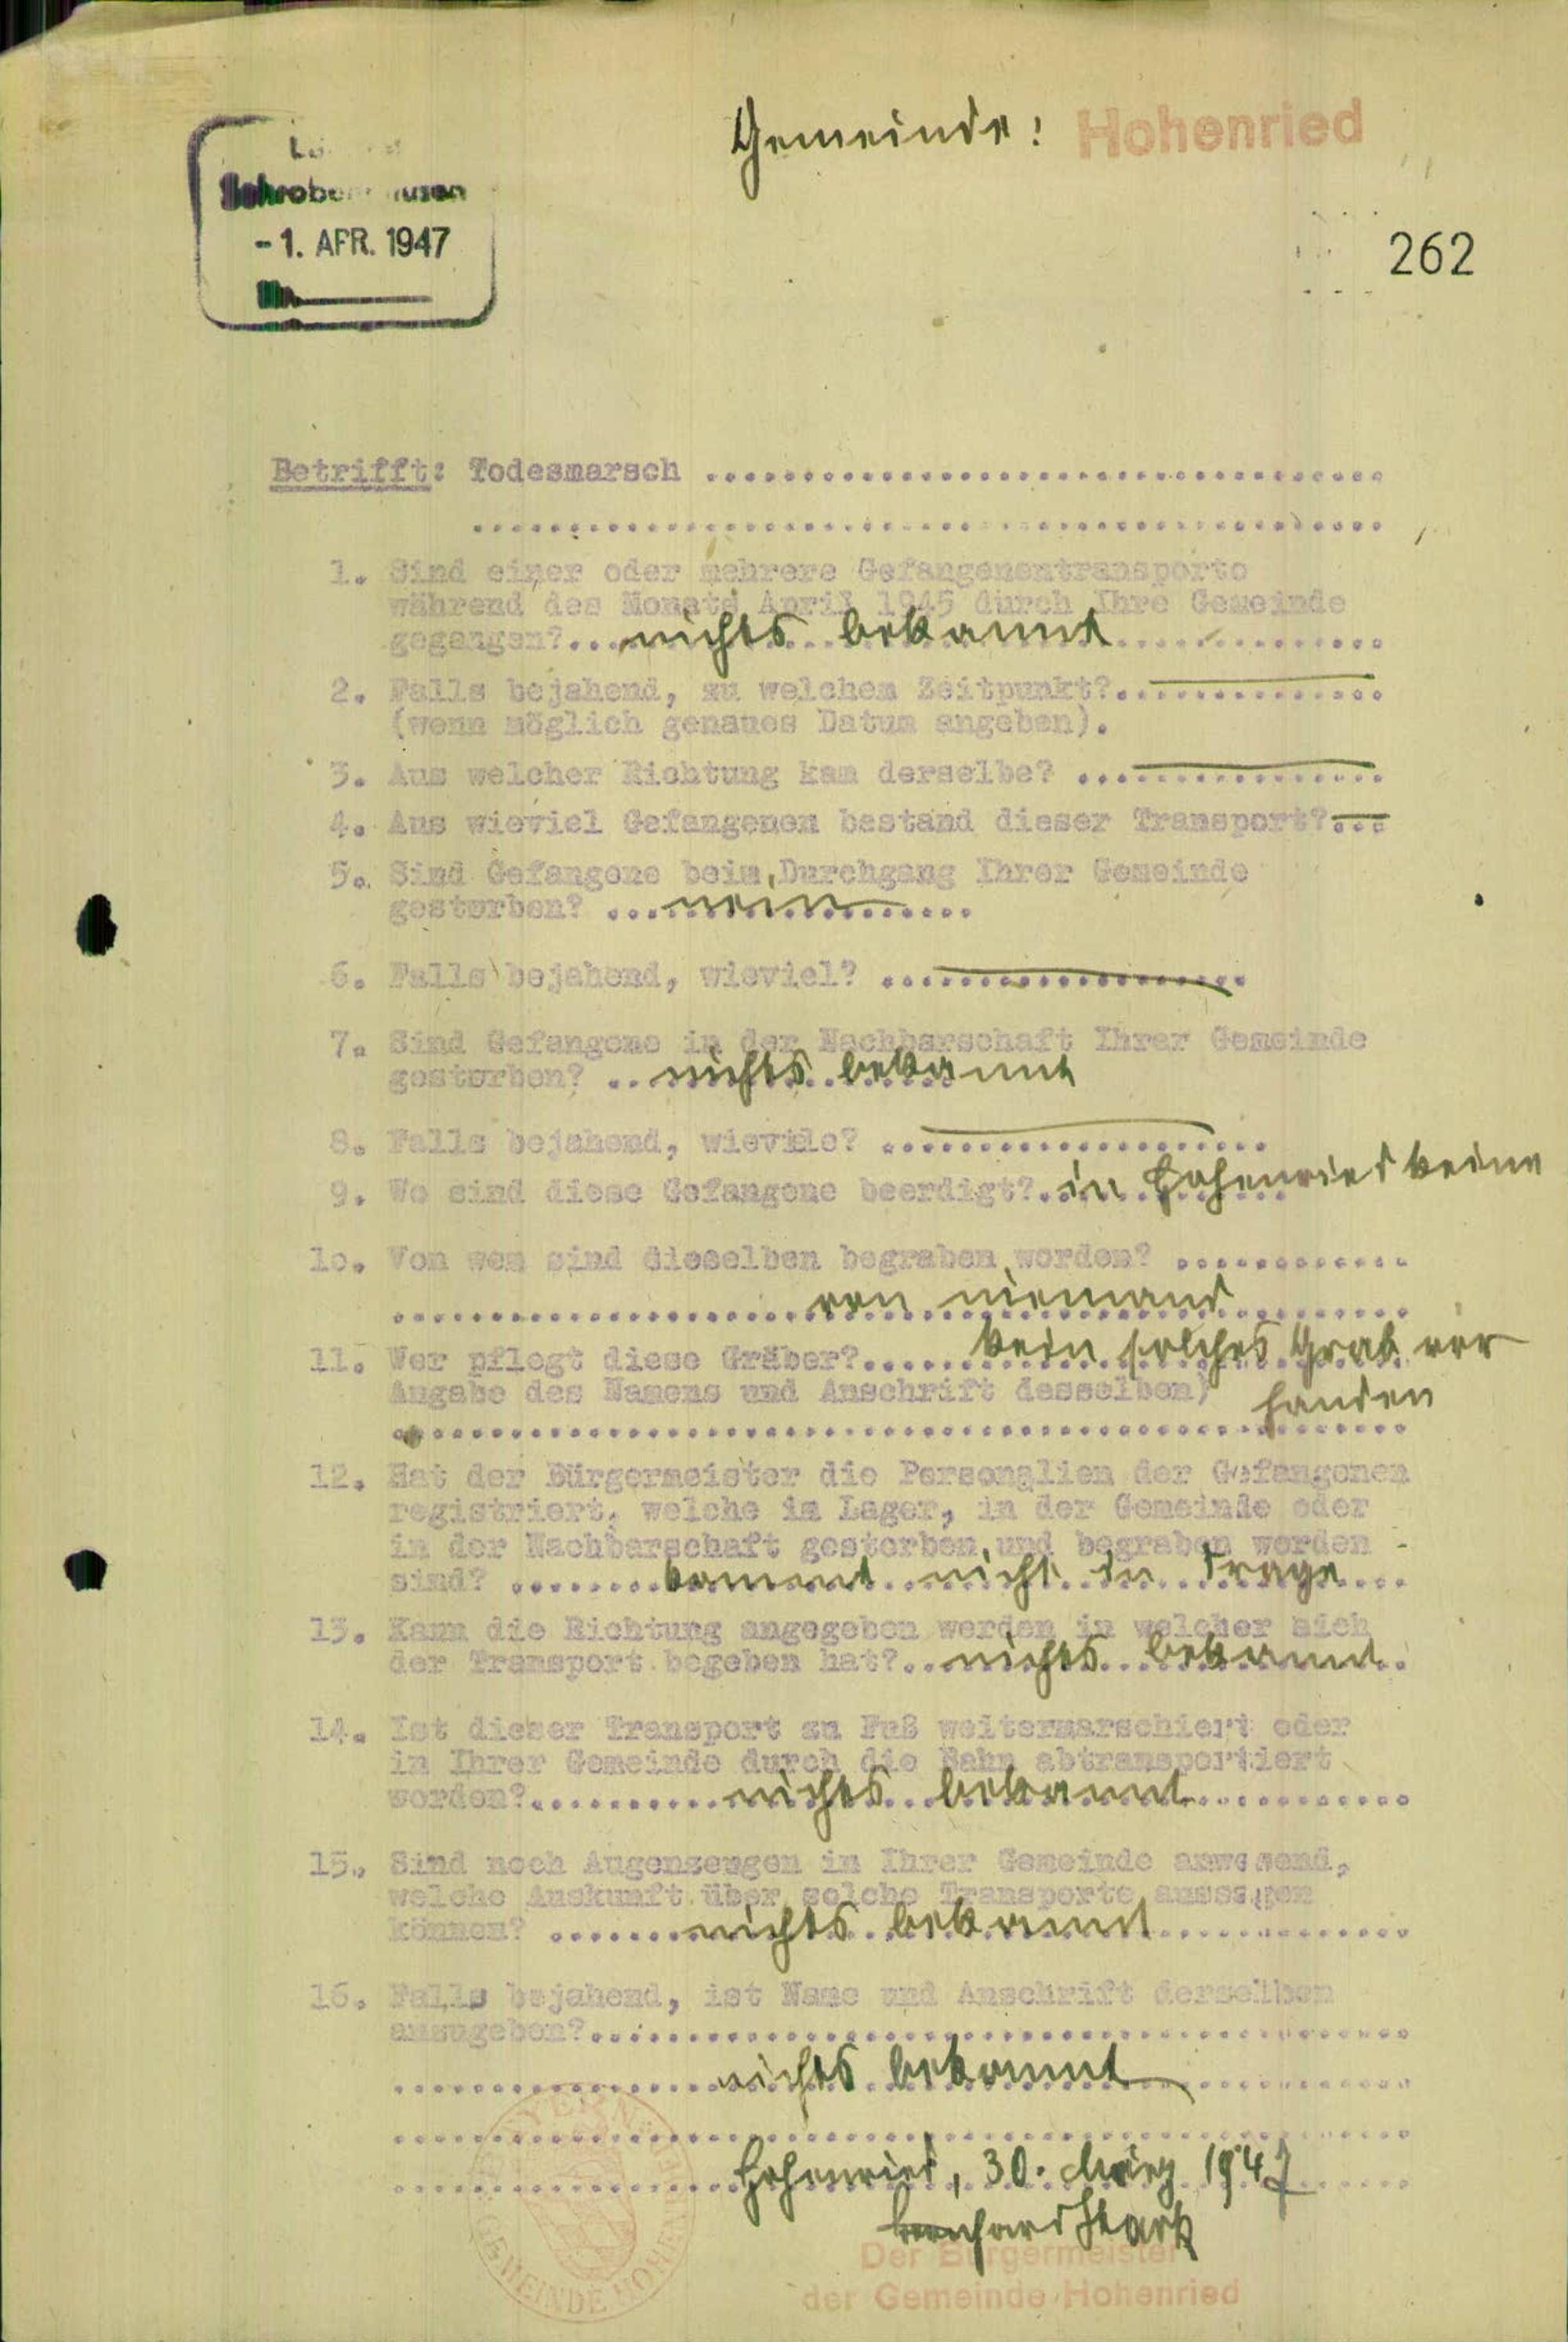 Gemeinde: Hohenried
Schrobenhausen
-1. APR. 1947
262
Betrifft: Todesmarsch ...................................
...............................................
1. Sind einer oder mehrere Gefangenentransporte
während des Monats April 1945 durch Ihre Gemeinde
gegangen?... nichts bekannt ..............
2. Falls bejahend, zu welchem Zeitpunkt?..............
(wenn möglich genaues Datum angeben).
3. Aus welcher Richtung kam derselbe? ................
4. Aus wieviel Gefangenen bestand dieser Transport?...
5. Sind Gefangene beim Durchgang Ihrer Gemeinde
gestorben? ... nein ......
6. Falls bejahend, wieviel? ...................
7. Sind Gefangene in der Nachbarschaft Ihrer Gemeinde
gestorben? .. nichts bekannt
8. Falls bejahend, wieviele? ....................
9. Wo sind diese Gefangene beerdigt?. in Hohenried keine
10. Von wem sind dieselben begraben worden? ............
...................... von niemand .........
11. Wer pflegt diese Gräber?...... kein solches Grab vor
Angabe des Namens und Anschrift desselben) handen
....................................................
12. Hat der Bürgermeister die Personalien der Gefangenen
registriert, welche im Lager, in der Gemeinde oder
in der Nachbarschaft gestorben und begraben worden
sind? ........ kommt nicht in Frage ...
13. Kann die Richtung angegeben werden in welcher sich
der Transport begeben hat?.. nichts bekannt .
14. Ist dieser Transport zu Fuß weitermarschiert oder
in Ihrer Gemeinde durch die Bahn abtransportiert
worden?.......... nichts bekannt ...........
15. Sind noch Augenzeugen in Ihrer Gemeinde anwesend,
welche Auskunft über solche Transporte aussagen
können? ....... nichts bekannt .............
16. Falls bejahend, ist Name und Anschrift derselben
anzugeben?..........................................
................. nichts bekannt ............
....................................................
................. Hohenried, 30. März 1947 .....
Bernhard Stark
Der Bürgermeister
der Gemeinde Hohenried
BAYERN
GEMEINDE HOHENRIED